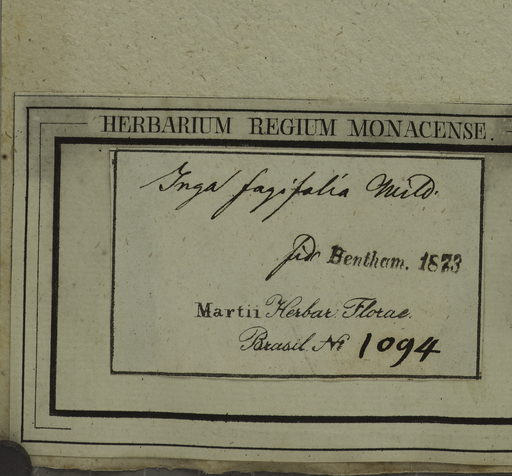 HERBARIUM REGIUM MONACENSE.
Inga fagifolia Willd.
fid Bentham. 1873
Martii Herbar. Florae
Brasil. No 1094